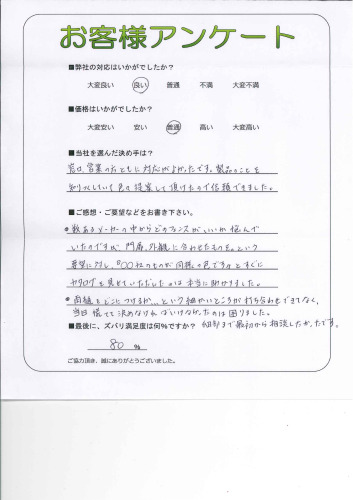 お客様アンケート
■弊社の対応はいかがでしたか？
大変良い 良い 普通 不満 大変不満
■価格はいかがでしたか？
大変安い 安い 普通 高い 大変高い
■当社を選んだ決め手は？
窓口、営業の方ともに対応がよかったです。製品のことを
知りつくしていて色々提案して頂けたので信頼できました。
■ご感想・ご要望などをお書き下さい。
•数あるメーカーの中からどのフェンスがいいか悩んで
いたのですが、門扉、外観に合わせたもの を、という
要望に対し、「〇〇社のものが同様の色です。」とすぐに
カタログを見せていただいたのは本当に助かりました。
•商植をどこにつけるか…という細かいところが打ち合わせできてなく、
当日慌てて決めなければいけなかったのは困りました。
■最後に、ズバリ満足度は何％ですか？ 細部まで最初から相談したかったです。
80 %
ご協力頂き、誠にありがとうございました。